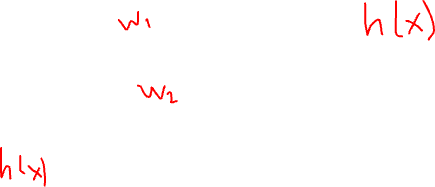 w₁ h(x)
w₂
h(x)